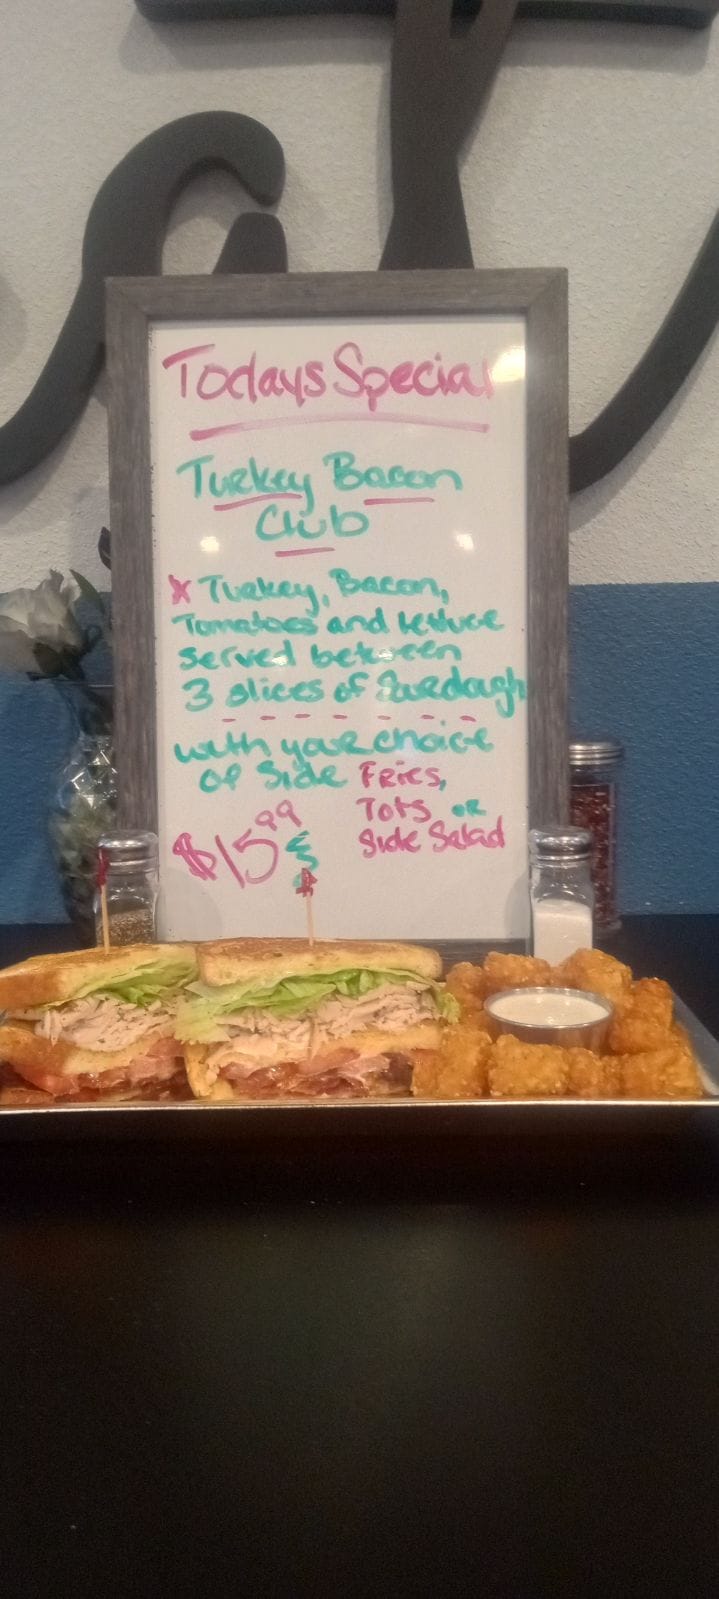 Todays Special
Turkey Bacon
Club
Turkey, Bacon,
Tomatoes and Lettuce
served between
3 slices of Sourdough
with your choice
of Side Fries,
Tots or
Side Salad
$15.99